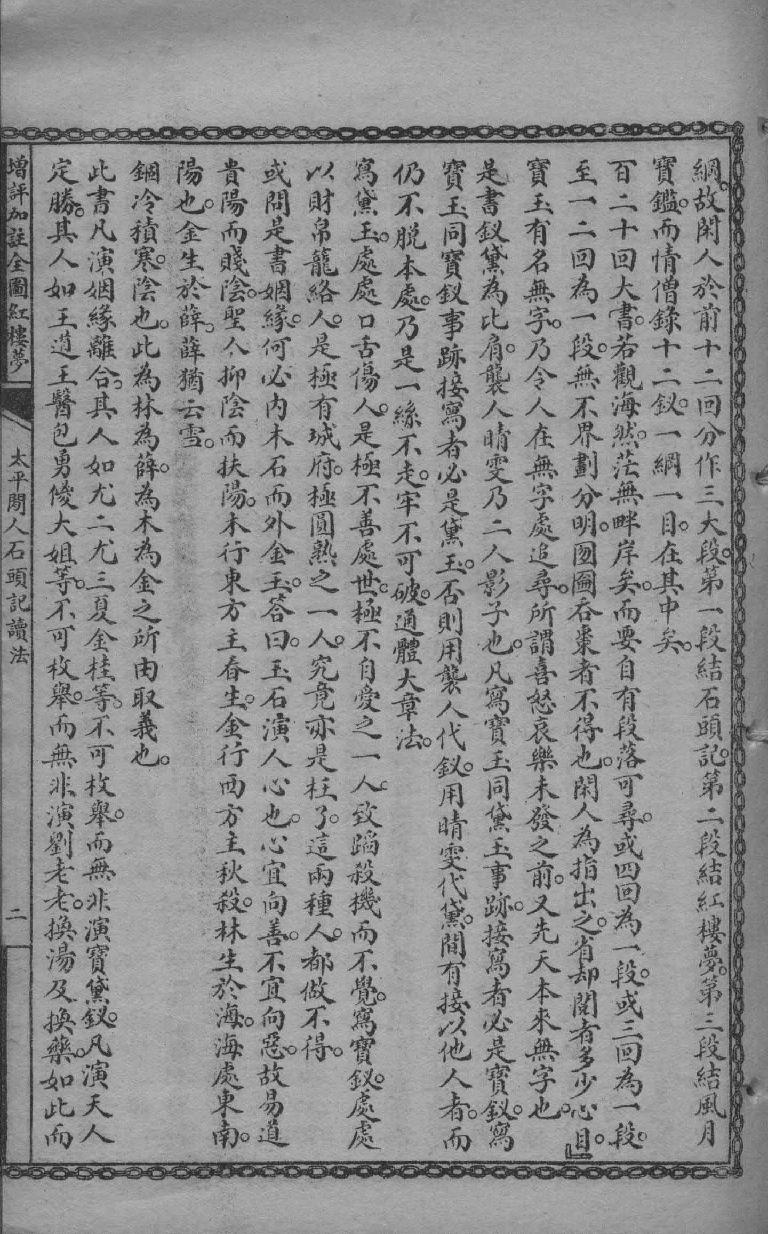 綱。故閑人於前十二回分作三大段。第一段結石頭記。第二段結紅樓夢。第三段結風月
寶鑑。而情僧錄十二釵。一綱一目。在其中矣。
百二十回大書。若觀海然。茫無畔岸矣。而要自有段落可尋。或四回為一段。或三回為一段。
至一二回為一段。無不界劃分明。囫圇吞棗者不得也。閑人為指出之。省却閱者多少心目。』
寶玉有名無字。乃令人在無字處追尋。所謂喜怒哀樂未發之前。又先天本來無字也。
是書釵黛為比肩。襲人晴雯乃二人影子也。凡寫寶玉同黛玉事跡。接寫者必是寶釵。寫
寶玉同寶釵事跡。接寫者必是黛玉。否則用襲人代釵。用晴雯代黛。間有接以他人者。而
仍不脫本處。乃是一絲不走。牢不可破。通體大章法。
寫黛玉。處處口舌傷人。是極不善處世。極不自愛之一人。致蹈殺機而不覺。寫寶釵。處處
以財帛籠絡人。是極有城府。極圓熟之一人。究竟亦是枉了。這兩種人。都做不得。
或問是書姻緣。何必內木石而外金玉。答曰。玉石演人心也。心宜向善。不宜向惡。故易道
貴陽而賤陰。聖人抑陰而扶陽。木行東方主春生。金行西方主秋殺。林生於海。海處東南。
陽也。金生於薛。薛猶云雪。
錮冷積寒。陰也。此為林為薛。為木為金之所由取義也。
此書凡演姻緣離合。其人如尤二尤三夏金桂等。不可枚舉。而無非演寶黛釵。凡演天人
定勝。其人如王道王醫包勇儍大姐等。不可枚舉。而無非演劉老老。換湯及換藥。如此而
增評加註全圖紅樓夢
太平閑人石頭記讀法
二